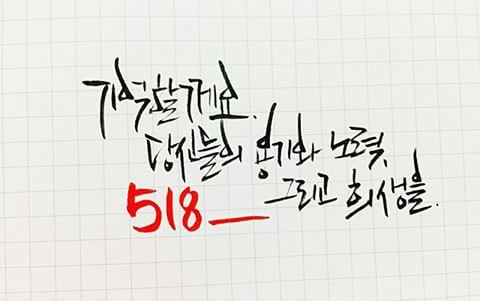 기억할게요.
당신들의 용기와 노력,
그리고 희생을.
518